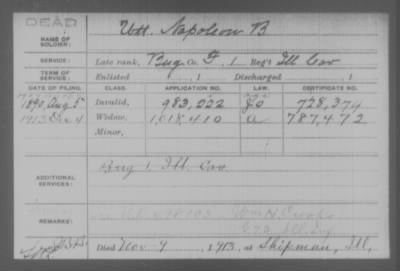 DEAD
NAME OF SOLDIER: Utt, Napoleon B
SERVICE: Late rank, Bug. Co. F, 1 Reg't Ill Cav
TERM OF SERVICE: Enlisted , 1 Discharged , 1
DATE OF FILING. CLASS. APPLICATION NO. LAW. CERTIFICATE NO.
1890, Aug 5 Invalid, 983,222 728,374
1913, Dec 4 Widow, 1,018,410 a 787,472
Minor,
ADDITIONAL SERVICES: Bug 1, Ill. Cav.
REMARKS:
Died Nov 9, 1913, at Shipman, Ill,